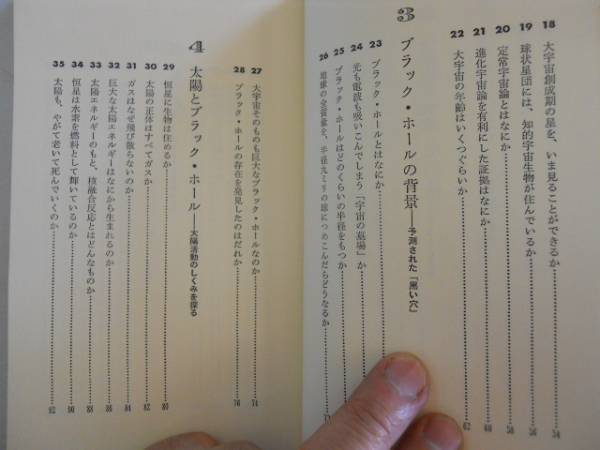 18 大宇宙創成期の星を、いま見ることができるか
19 球状星団には、知的宇宙生物が住んでいるか
20 定常宇宙論とはなにか
21 進化宇宙論を有利にした証拠はなにか
22 大宇宙の年齢はいくつぐらいか
3 ブラック・ホールの背景──予測された「黒い穴」
23 ブラック・ホールとはなにか
24 光も電波も吸いこんでしまう「宇宙の墓場」か
25 ブラック・ホールはどのくらいの半径をもつか
26 地球の全質量を、半径九ミリの球につめこんだらどうなるか
27 大宇宙そのものも巨大なブラック・ホールなのか
28 ブラック・ホールの存在を発見したのはだれか
4 太陽とブラック・ホール──太陽活動のしくみを探る
29 恒星に生物は住めるか
30 太陽の正体はすべてガスか
31 ガスはなぜ飛び散らないのか
32 巨大な太陽エネルギーはなにから生まれるのか
33 太陽エネルギーのもと、核融合反応とはどんなものか
34 恒星は水素を燃料として輝いているのか
35 太陽も、やがて老いて死んでいくのか